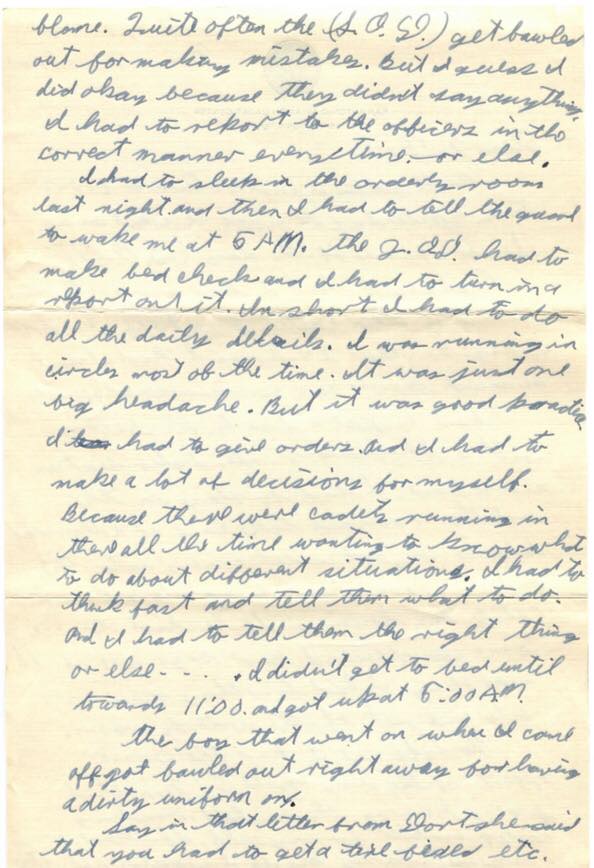 blame. Quite often the (J. O. D.) get bawled
out for making mistakes. But I guess I
did okay because they didn't say anything,
I had to report to the officers in the
correct manner everytime. or else.
I had to sleep in the orderly room
last night and then I had to tell the guard
to wake me at 5 AM. the J. O.D. had to
make bed check and I had to turn in a
report on it. In short I had to do
all the daily details. I was running in
circles most of the time. It was just one
big headache. But it was good practice
I had to give orders. And I had to
make a lot of decisions for myself.
Because there were cadets running in
there all the time wanting to know what
to do about different situations. I had to
think fast and tell them what to do.
And I had to tell them the right thing
or else - - . . I didn't get to bed until
towards 11:00. and got up at 5:00 A.M.
The boy that went on when I came
off got bawled out right away for having
a dirty uniform on.
Say in that letter from Dort she said
that you had to get a etc.